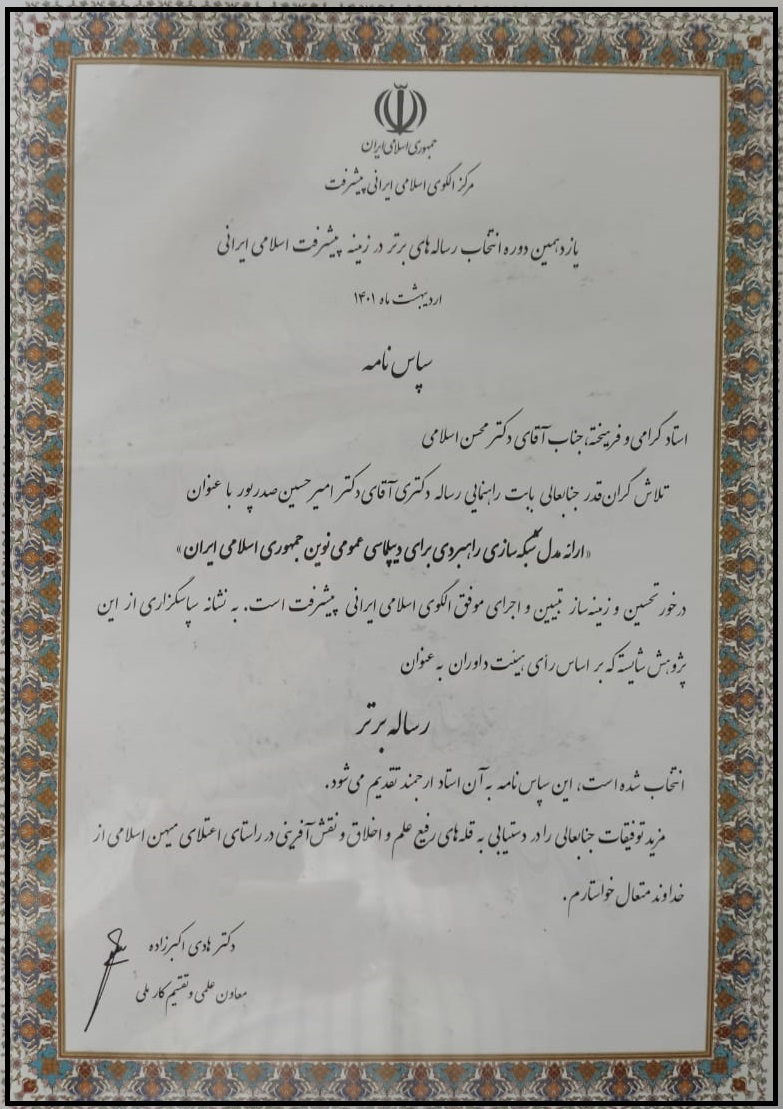 جمهوری اسلامی ایران
مرکز الگوی اسلامی ایرانی پیشرفت
یازدهمین دوره انتخاب رساله‌های برتر در زمینه پیشرفت اسلامی ایرانی
اردیبهشت ماه ۱۴۰۱
سپاس نامه
استاد گرامی و فرهیخته، جناب آقای دکتر محسن اسلامی
تلاش گران‌قدر جنابعالی بابت راهنمایی رساله دکتری آقای دکتر امیرحسین صدرپور با عنوان
«ارائه مدل شبکه سازی راهبردی برای دیپلماسی عمومی نوین جمهوری اسلامی ایران»
درخور تحسین و زمینه‌ساز تبیین و اجرای موفق الگوی اسلامی ایرانی پیشرفت است. به نشانه سپاسگزاری از این
پژوهش شایسته که بر اساس رأی هیئت داوران به عنوان
رساله برتر
انتخاب شده است، این سپاس نامه به آن استاد ارجمند تقدیم می‌شود.
مزید توفیقات جنابعالی را در دستیابی به قله‌های رفیع علم و اخلاق و نقش آفرینی در راستای اعتلای میهن اسلامی از
خداوند متعال خواستارم.
دکتر هادی اکبرزاده
معاون علمی و تقسیم کار ملی